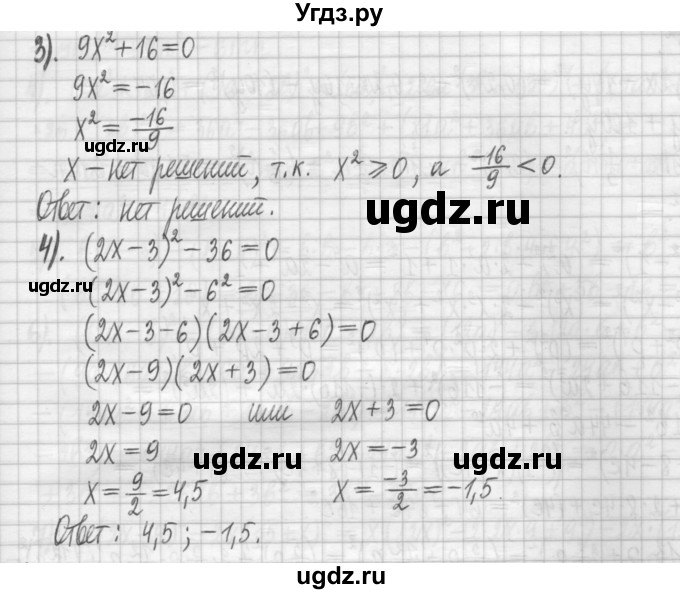 Угдз.ру
3). 9x² + 16 = 0
9x² = −16
x² = −16/9
угдз.ru
x − нет решений, т.к. x² ⩾ 0, а −16/9 < 0.
Ответ: нет решений.
ugdz.ru
4). (2x − 3)² − 36 = 0
ugdz.ru
(2x − 3)² − 6² = 0
(2x − 3 − 6)(2x − 3 + 6) = 0
(2x − 9)(2x + 3) = 0
2x − 9 = 0 или 2x + 3 = 0
2x = 9 2x = −3
ugdz.ru ugdz.ru
x = 9/2 = 4,5 x = −3/2 = −1,5.
Ответ: 4,5; −1,5.
ugdz.ru